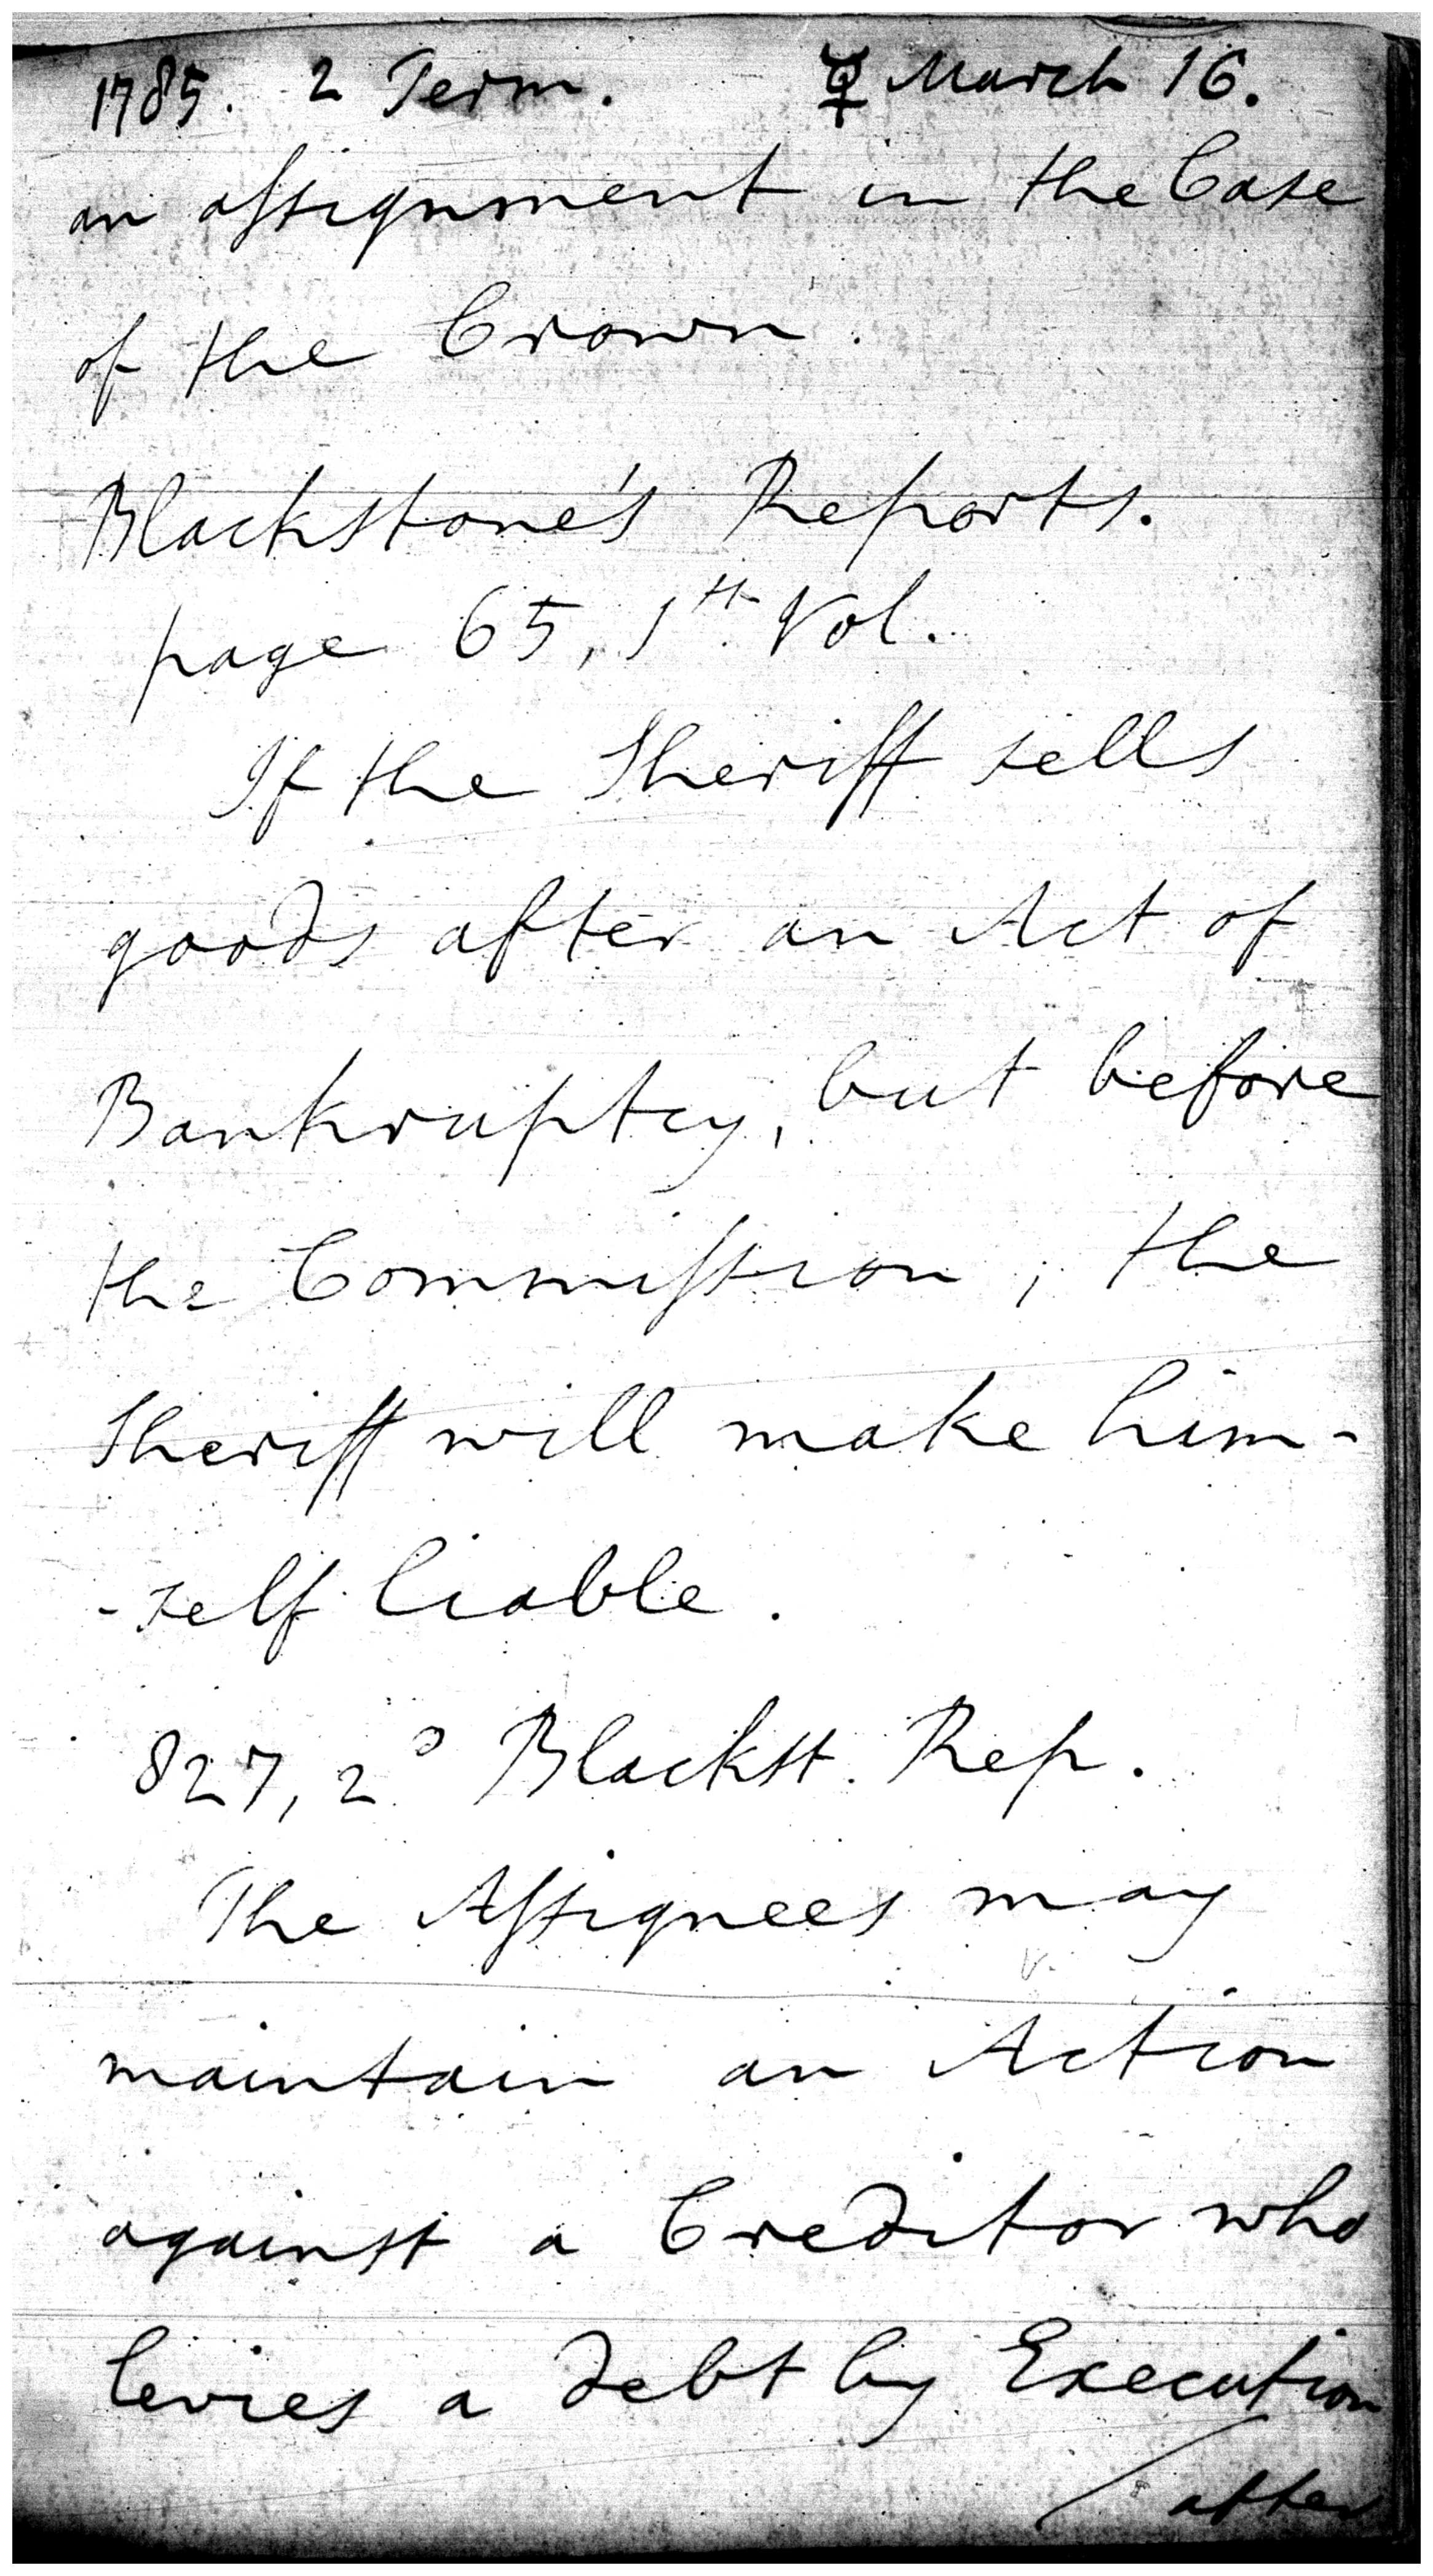 1785. 2 Term. ☿ March 16.
an assignment in the Case
of the Crown.
Blackstone's Reports.
page 65, 1st. Vol.
If the Sheriff sells
goods after an Act of
Bankruptcy, but before
the Commission, the
Sheriff will make him-
-self liable.
827, 2d Blackst. Rep.
The Assignees may
maintain an Action
against a Creditor who
levies a debt by Execution
/after